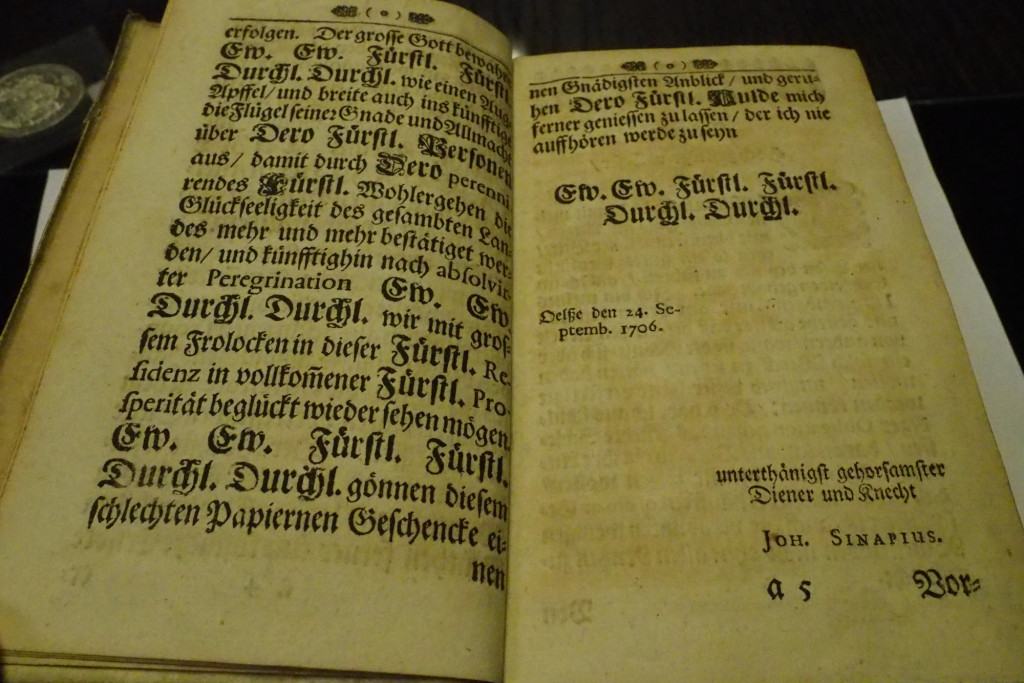 ( o )
erfolgen. Der grosse Gott bewahre
Ew. Ew. Fürstl. Fürstl.
Durchl. Durchl. wie einen Aug-
Apffel/ und breite auch ins künfftige
die Flügel seiner Gnade und Allmacht
über Dero Fürstl. Personen
aus/ damit durch Dero perenni-
rendes Fürstl. Wohlergehen die
Glückseeligkeit des gesambten Lan-
des mehr und mehr bestätiget wer-
den/ und künfftighin nach absolvir-
ter Peregrination Ew. Ew.
Durchl. Durchl. wir mit gros-
sem Frolocken in dieser Fürstl. Re-
sidenz in vollkom̃ener Fürstl. Pro-
sperität beglückt wieder sehen mögen.
Ew. Ew. Fürstl. Fürstl.
Durchl. Durchl. gönnen diesem
schlechten Papiernen Geschencke ei-
nen
( o )
nen Gnädigsten Anblick/ und geru-
hen Dero Fürstl. Hulde mich
ferner geniessen zu lassen/ der ich nie
auffhören werde zu seyn
Ew. Ew. Fürstl. Fürstl.
Durchl. Durchl.
Oelße den 24. Se-
ptemb. 1706.
unterthänigst gehorsamster
Diener und Knecht
Joh. Sinapius.
a 5 Vor-